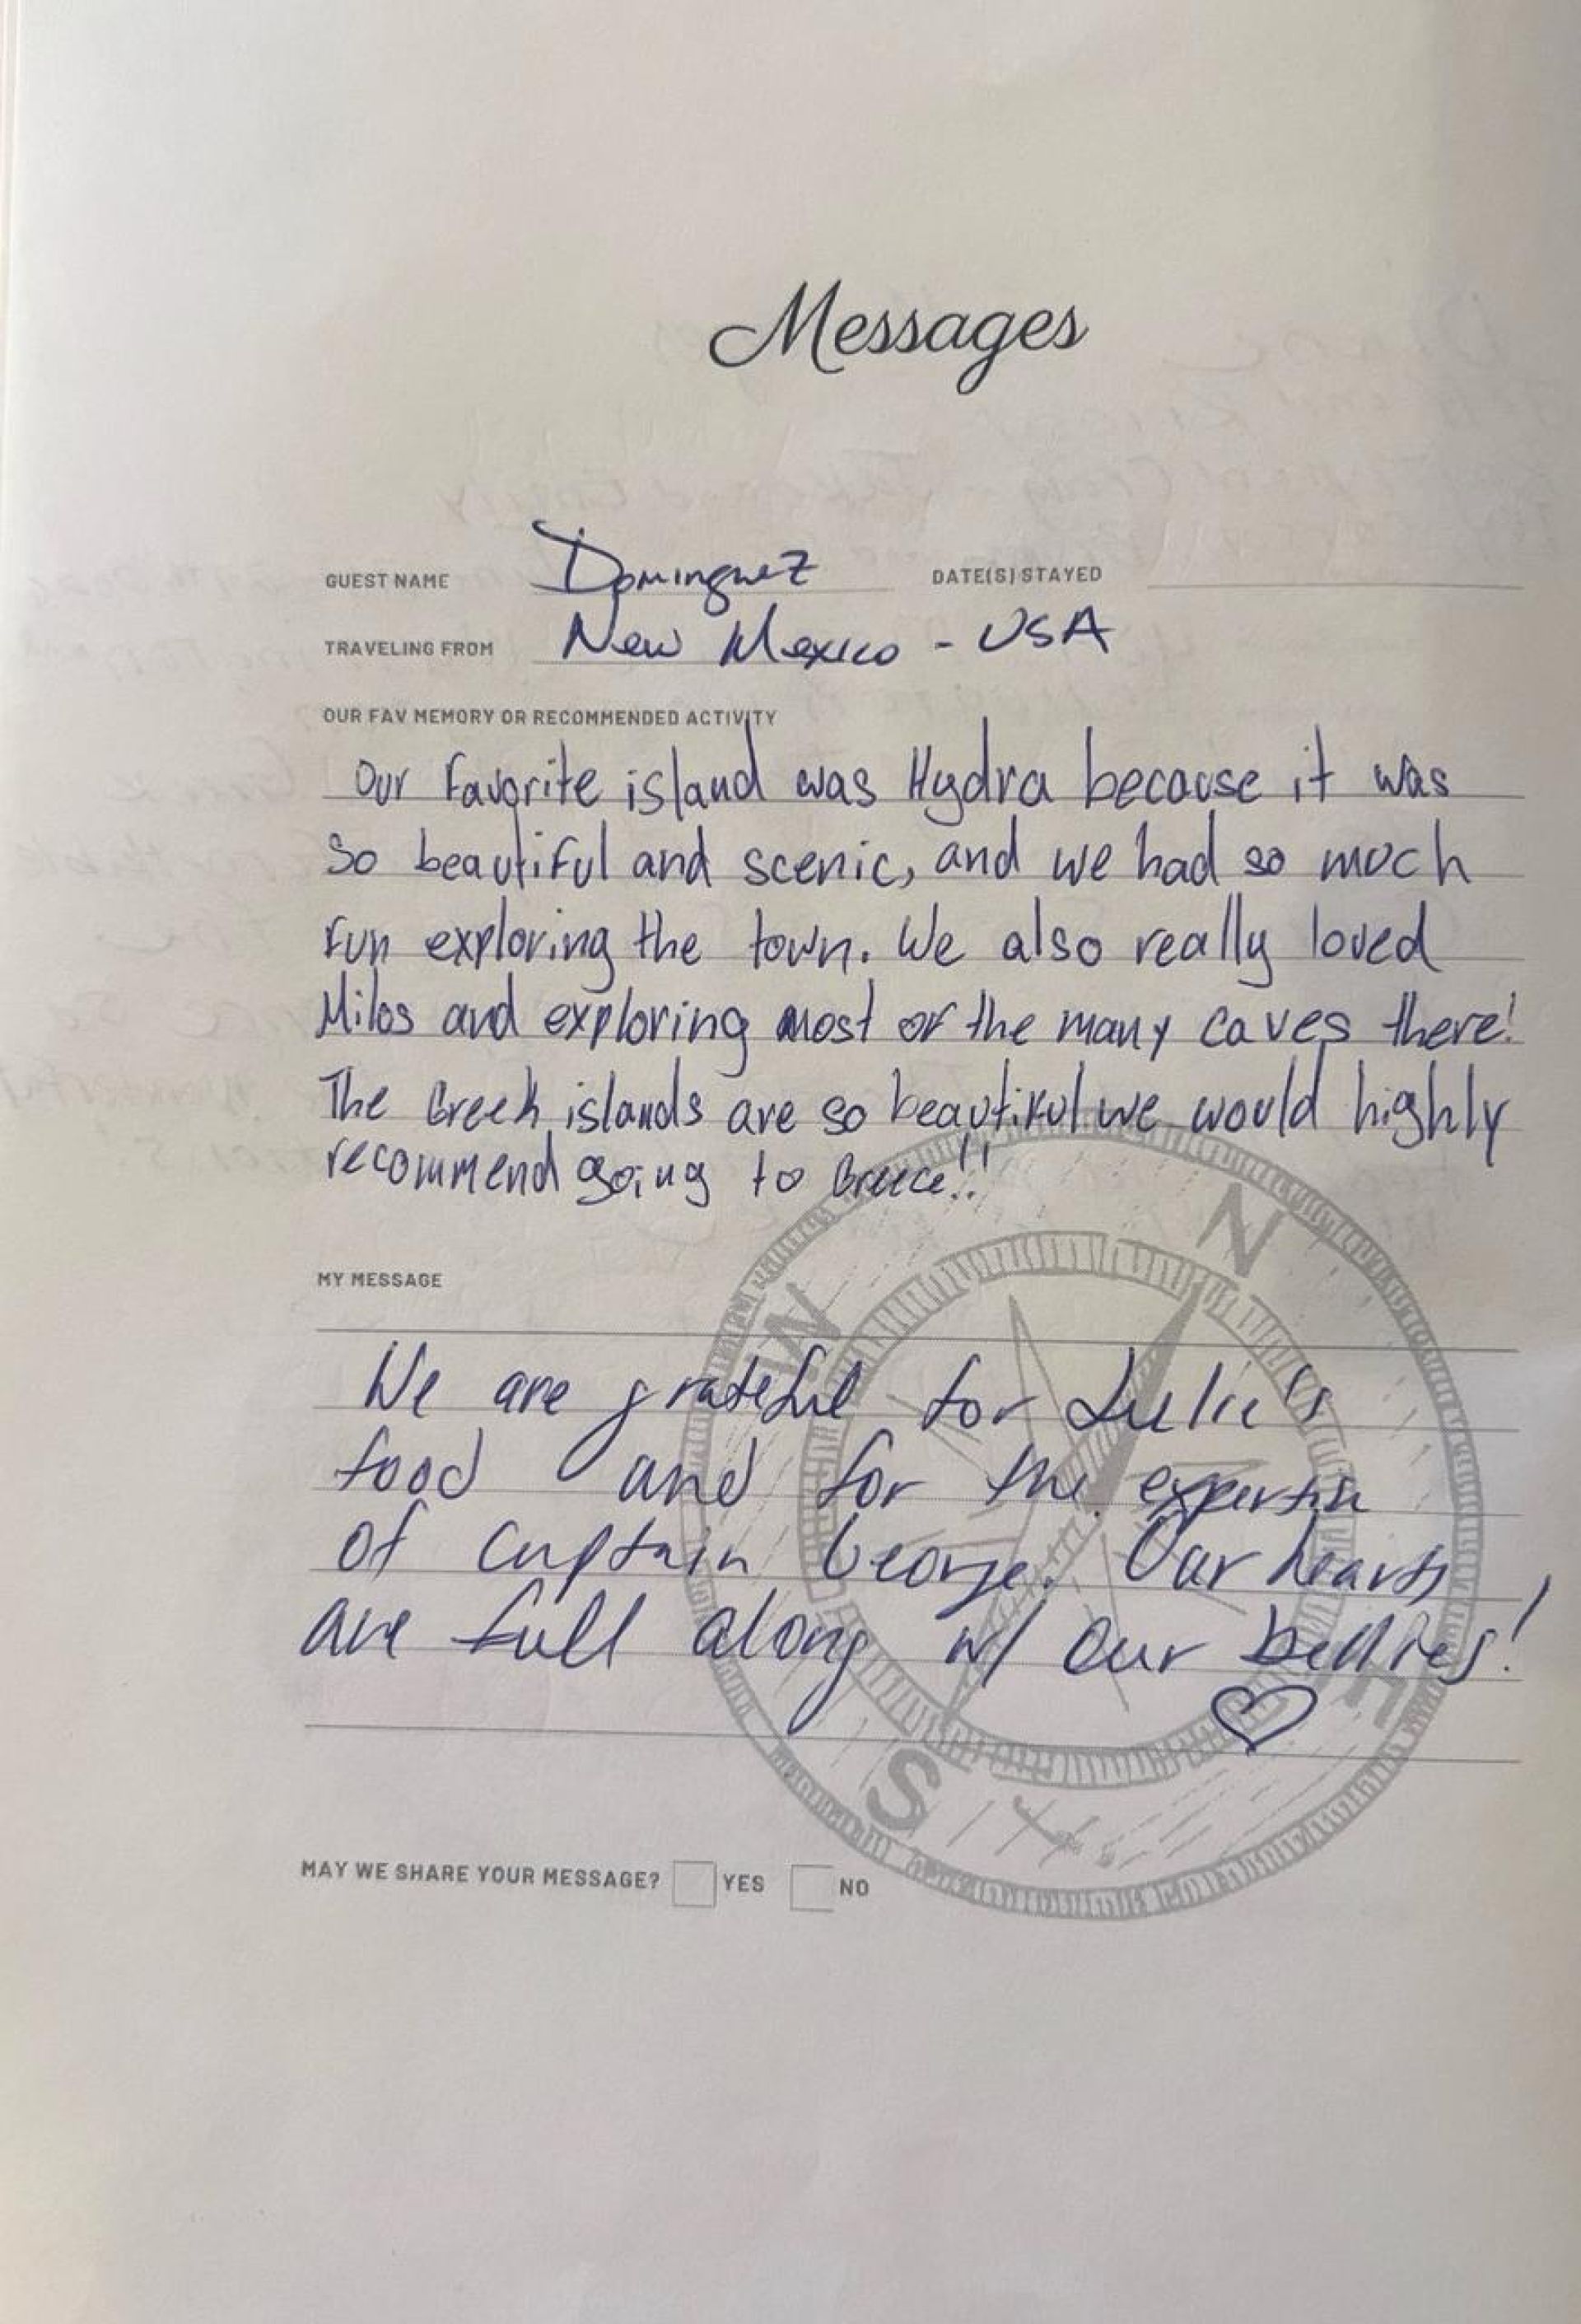 Messages
GUEST NAME Dominguez DATE(S) STAYED
TRAVELING FROM New Mexico - USA
OUR FAV MEMORY OR RECOMMENDED ACTIVITY
Our Favorite island was Hydra because it was
so beautiful and scenic, and we had so much
fun exploring the town. We also really loved
Milos and exploring most of the many caves there!
The Greek islands are so beautiful we would highly
recommend going to Greece!!
MY MESSAGE
We are grateful for Julie's
food and for the expertise
of Captain George. Our hearts
are full along w/ our bellies!
MAY WE SHARE YOUR MESSAGE? YES NO
N
W
E
S